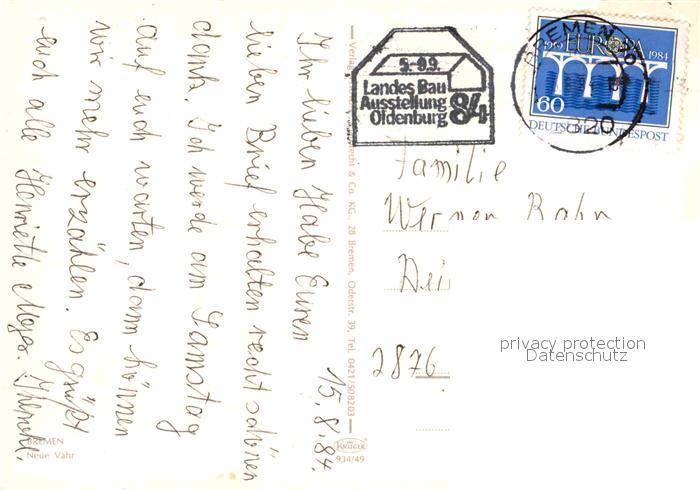 15.8.'84.
Ihr lieben Habe Euren
lieben Brief erhalten recht schönen
dank. Ich werde am Samstag
auf euch warten, dann können
wir mehr erzählen. Es grüßt
euch alle Henriette Meyer.
BREMEN
Neue Vahr
Verlag & Co. KG., 28 Bremen, Oderstr. 39, Tel. 0421/508203
KRÜGER
934/49
5.-9.9.
Landes Bau
Ausstellung
Oldenburg 84
BREMEN
320
1959 EUROPA 1984
60
DEUTSCHE BUNDESPOST
Familie
Werner Bahn
2876
privacy protection
Datenschutz